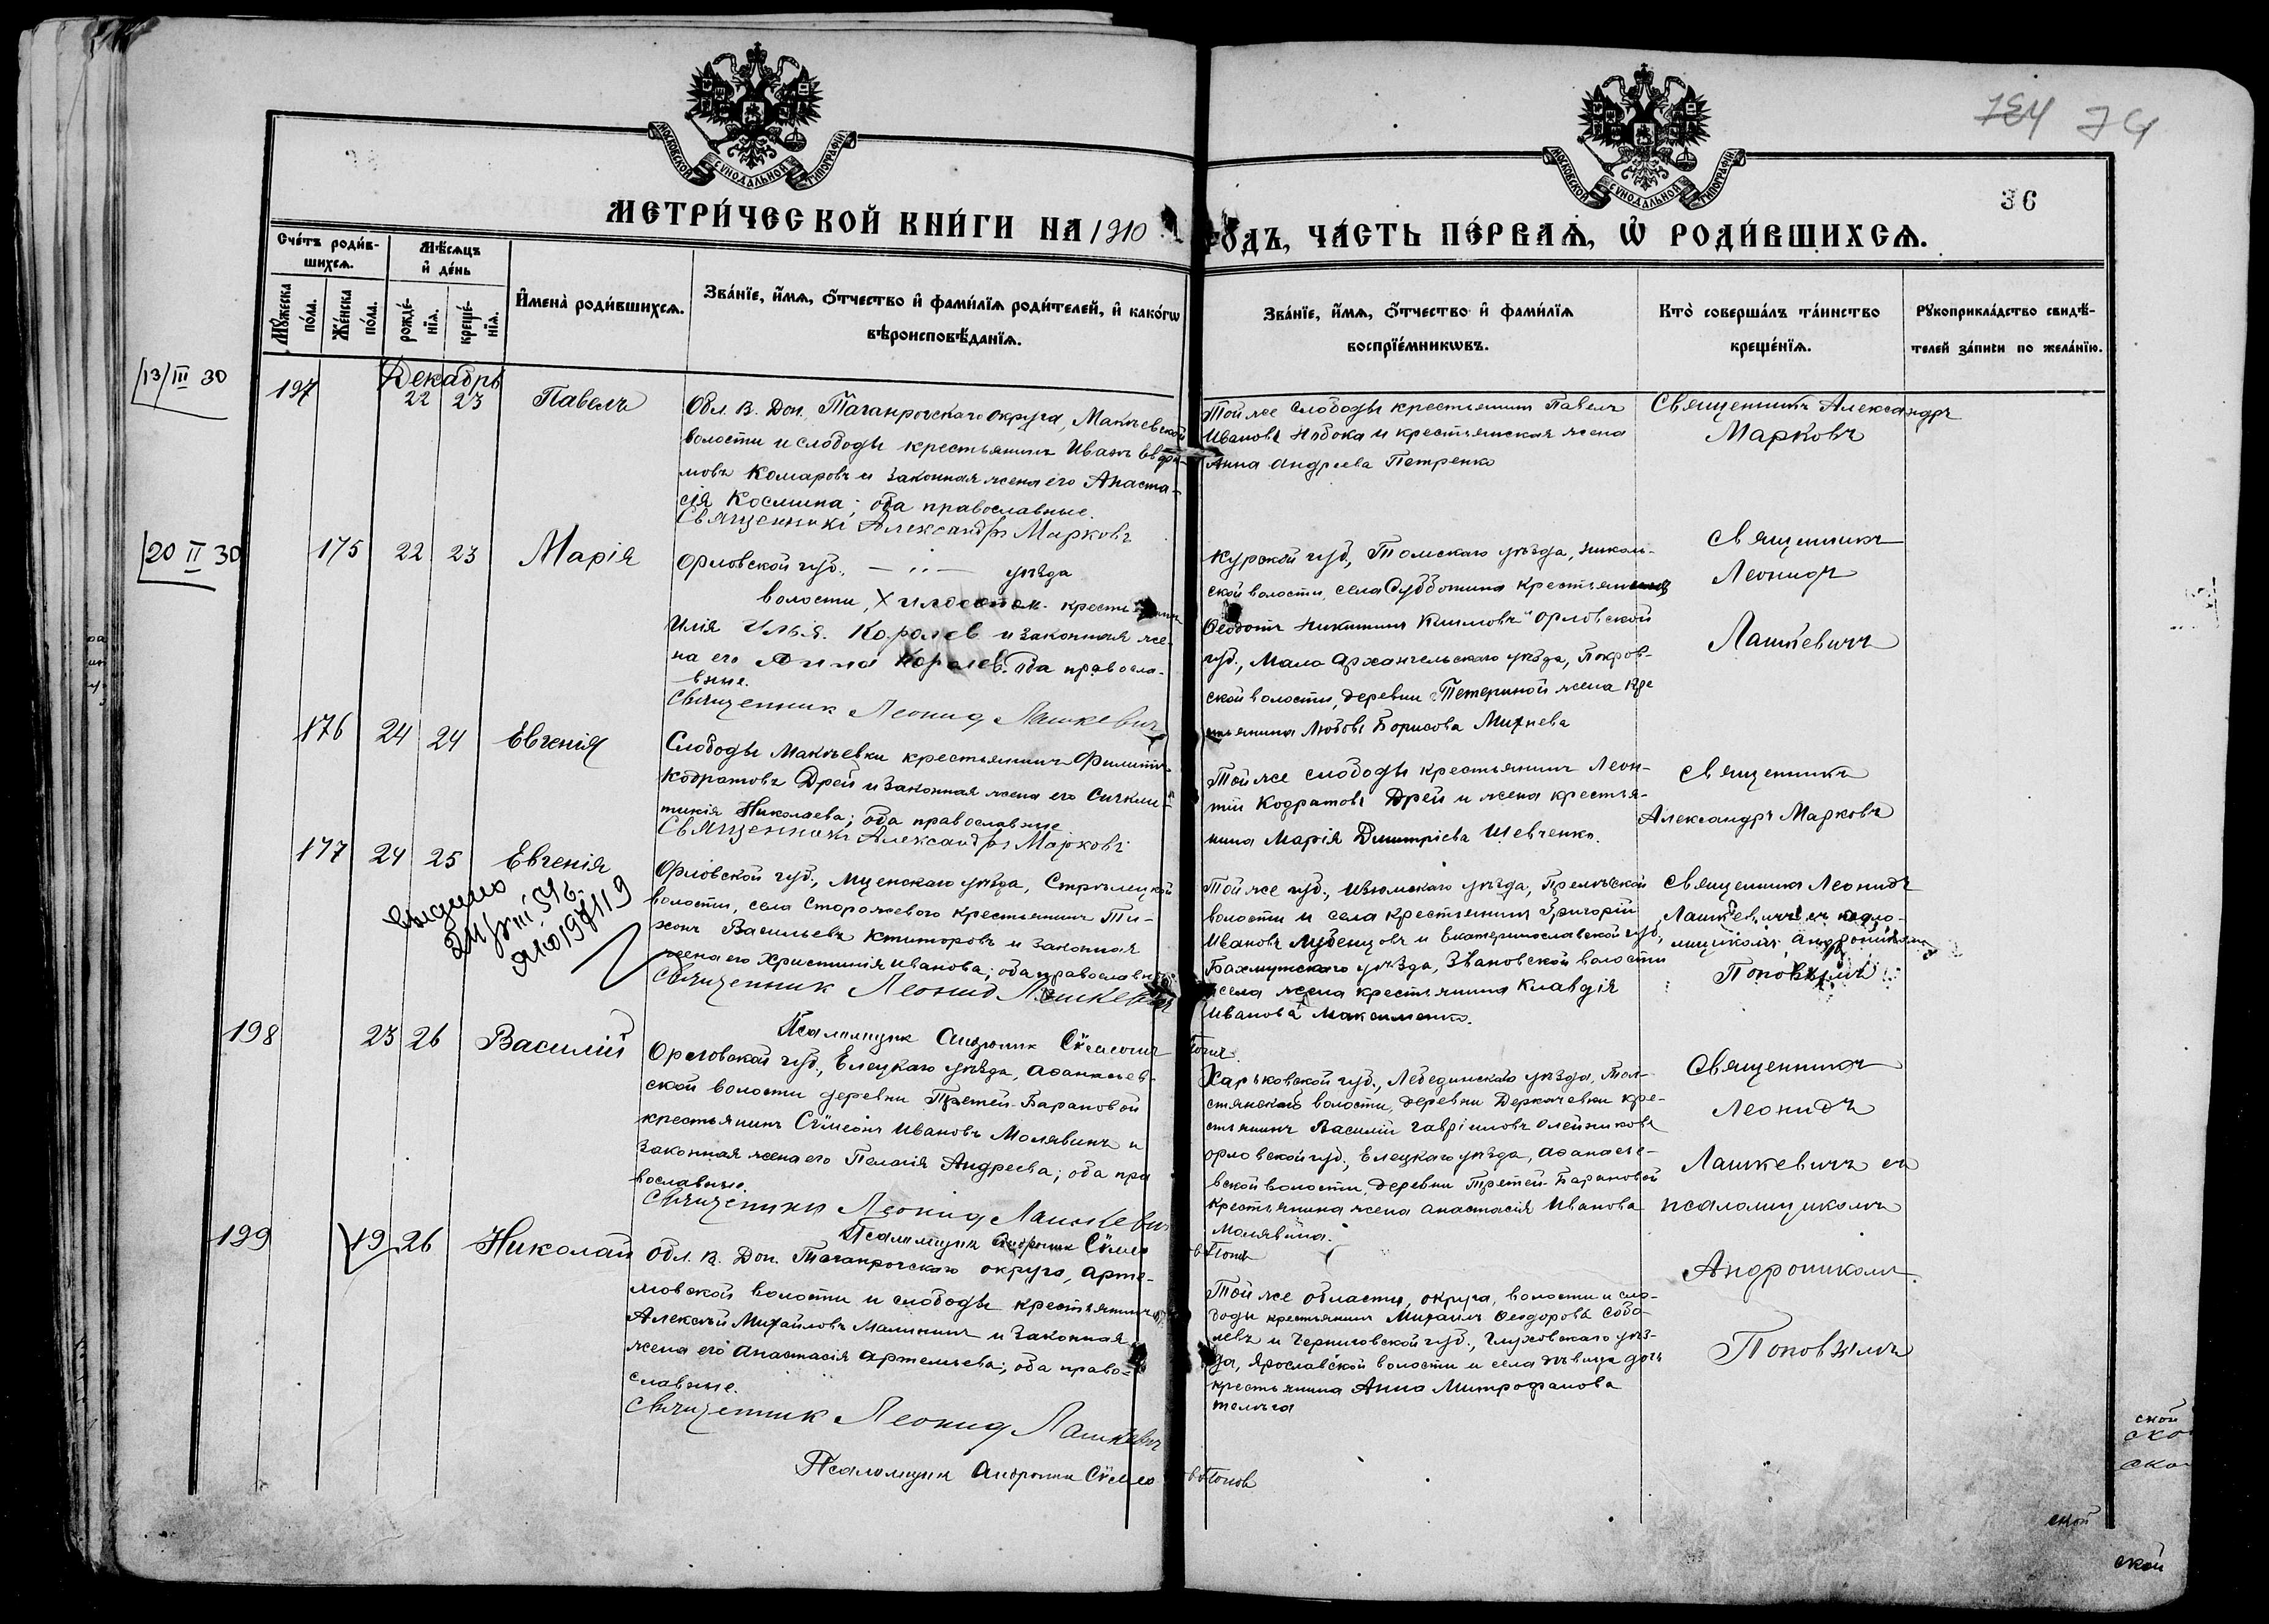 МОСКОВСКОЙ СУНОДАЛЬНОЙ ТИПОГРАФІИ
МОСКОВСКОЙ СУНОДАЛЬНОЙ ТИПОГРАФІИ
74
36
МЕТРИ́ЧЕСКОЙ КНИ́ГИ НА 1910
ГОДЪ, ЧА́СТЬ ПЕ́РВАѦ, Ѡ҆ РОДИ́ВШИХСѦ.
Сче́тъ роди́в-
шихсѧ.
Мѣ́сѧцъ
и҆ де́нь
Мꙋ́жеска
по́ла.
Же́нска
по́ла.
рожде́-
нїѧ.
креще́-
нїѧ.
И҆мена̀ роди́вшихсѧ.
Зва́нїе, и҆́мѧ, ѻ҆́тчество и҆ фами́лїѧ роди́телей, и҆ како́гѡ
вѣроисповѣ́данїѧ.
Зва́нїе, и҆́мѧ, ѻ҆́тчество и҆ фами́лїѧ
воспрїе́мникѡвъ.
Кто̀ соверша́лъ та́инство
креще́нїѧ.
Рꙋкоприкла́дство свидѣ́-
телей за́писи по жела́нїю.
13/III 30
Декабрь
197 22 23 Павелъ
Обл. В. Дон. Таганрогскаго округа, Макѣевской
волости и слободы крестьянинъ Иванъ Евфи-
мовъ Комаровъ и законная жена его Анаста-
сія Космина; оба православные.
Священникъ Александръ Марковъ
Той же слободы крестьянинъ Павелъ
Ивановъ и крестьянская жена
Анна Андреева Петренко
Священникъ Александръ
Марковъ
20 II 30
175 22 23 Марія
Орловской губ., уѣзда
волости, крестьянинъ
Илія Королев и законная же-
на его Анна Королев. Оба правосла-
вные.
Священник Леонид Лашкевич
Курской губ., уѣзда, Николь-
ской волости, села Субботина крестьянинъ
Ѳеодотъ Никитинъ Климовъ и Орловской
губ., Мало Архангельскаго уѣзда, Покров-
ской волости, деревни Тетериной жена кре
стьянина Любовь Борисова Михнева
Священникъ
Леонидъ
Лашкевичъ
176 24 24 Евгенія
Слободы Макѣевки крестьянинъ Филиппъ
Кодратовъ Дрей и законная жена его Синкли-
тикія Николаева; оба православные
Священникъ Александръ Марковъ
Той же слободы крестьянинъ Леон-
тій Кодратовъ Дрей и жена крестья-
нина Марія Димитріева Шевченко.
Священникъ
Александръ Марковъ
177 24 25 Евгенія
Орловской губ., Мценскаго уѣзда, Стрѣлецкой
волости, села Сторожевого крестьянинъ Ти-
хонъ Васильевъ Ктиторовъ и законная
жена его Христинія Иванова; оба православные
Священник Леонид Лашкевич
Псаломщик Андроник Сѵмеонов Попов.
Той же губ., Изюмскаго уѣзда,
волости и села крестьянинъ Григорій
Ивановъ Лубенцовъ и Екатеринославской губ,
Бахмутскаго уѣзда, Звановской волости
села жена крестьянина Клавдія
Иванова Максименко.
Священникъ Леонидъ
Лашкевичъ съ псало-
мщикомъ Андроникомъ
Поповымъ
198 23 26 Василій
Орловской губ., Елецкаго уѣзда, Аѳанасьев-
ской волости деревни Третей-Барановой
крестьянинъ Сѵмеонъ Ивановъ Молявинъ и
законная жена его Пелагія Андреева; оба пра
вославные.
Священник Леонид Лашкевич
Псаломщик Андроник Сѵмеонов Попов
Харьковской губ., Лебединскаго уѣзда, Тол-
стянской волости, деревни Деркачевки кре-
стьянинъ Василій Гавріиловъ Олейниковъ
Орловской губ., Елецкаго уѣзда, Аѳанасье-
вской волости, деревни Третей-Барановой
крестьянина жена Анастасія Иванова
Молявина.
Священникъ
Леонидъ
Лашкевичъ съ
псаломщикомъ
Андроникомъ
Поповымъ
199 19 26 Николай
Обл. В. Дон. Таганрогскаго округа, Арте-
мовской волости и слободы крестьянинъ
Алексѣй Михайловъ Малининъ и законная
жена его Анастасія Артемьева; оба право-
славные.
Священник Леонид Лашкевич
Псаломщик Андроник Сѵмеонов Попов
Той же области, округа, волости и сло-
боды крестьянинъ Михаилъ Ѳеодоровъ Собо-
левъ и Черниговской губ., Глуховскаго уѣз-
да, Ярославской волости и села дѣвица дочь
крестьянина Анна Митрофанова